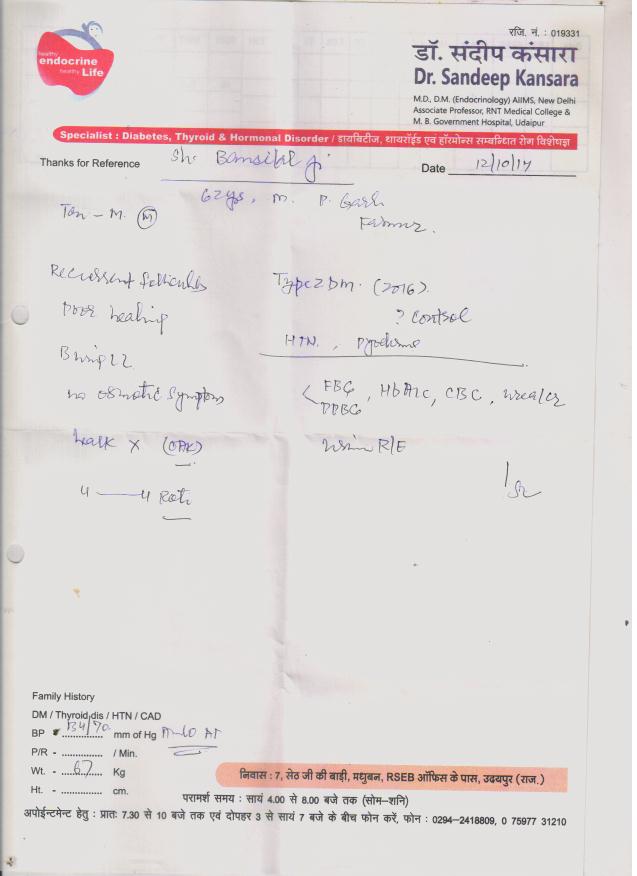 healthy
endocrine
healthy Life
रजि. नं. : 019331
डॉ. संदीप कंसारा
Dr. Sandeep Kansara
M.D., D.M. (Endocrinology) AIIMS, New Delhi
Associate Professor, RNT Medical College &
M. B. Government Hospital, Udaipur
Specialist : Diabetes, Thyroid & Hormonal Disorder / डायबिटीज, थायरॉईड एवं हॉरमोन्स सम्बन्धित रोग विशेषज्ञ
Thanks for Reference Sh. Bansilal Ji Date 12/10/17
62 yrs, M. P. Garh
Farmer.
Tan - M. (M)
Recurrent folliculitis Type 2 DM. (2016).
Poor healing ? Control
HTN, Pyoderma
B
no osmotic symptom FBG, HbA1c, CBC, urea/cr
PPBG
walk x Urine R/E
4 — 4 Roti
Family History
DM / Thyroid dis / HTN / CAD
BP - 134/70 mm of Hg
P/R - ............... / Min.
Wt. - 67 Kg
Ht. - ............... cm.
निवास : 7, सेठ जी की बाड़ी, मधुबन, RSEB ऑफिस के पास, उदयपुर (राज.)
परामर्श समय : सायं 4.00 से 8.00 बजे तक (सोम–शनि)
अपोईन्टमेन्ट हेतु : प्रातः 7.30 से 10 बजे तक एवं दोपहर 3 से सायं 7 बजे के बीच फोन करें, फोन : 0294-2418809, 0 75977 31210